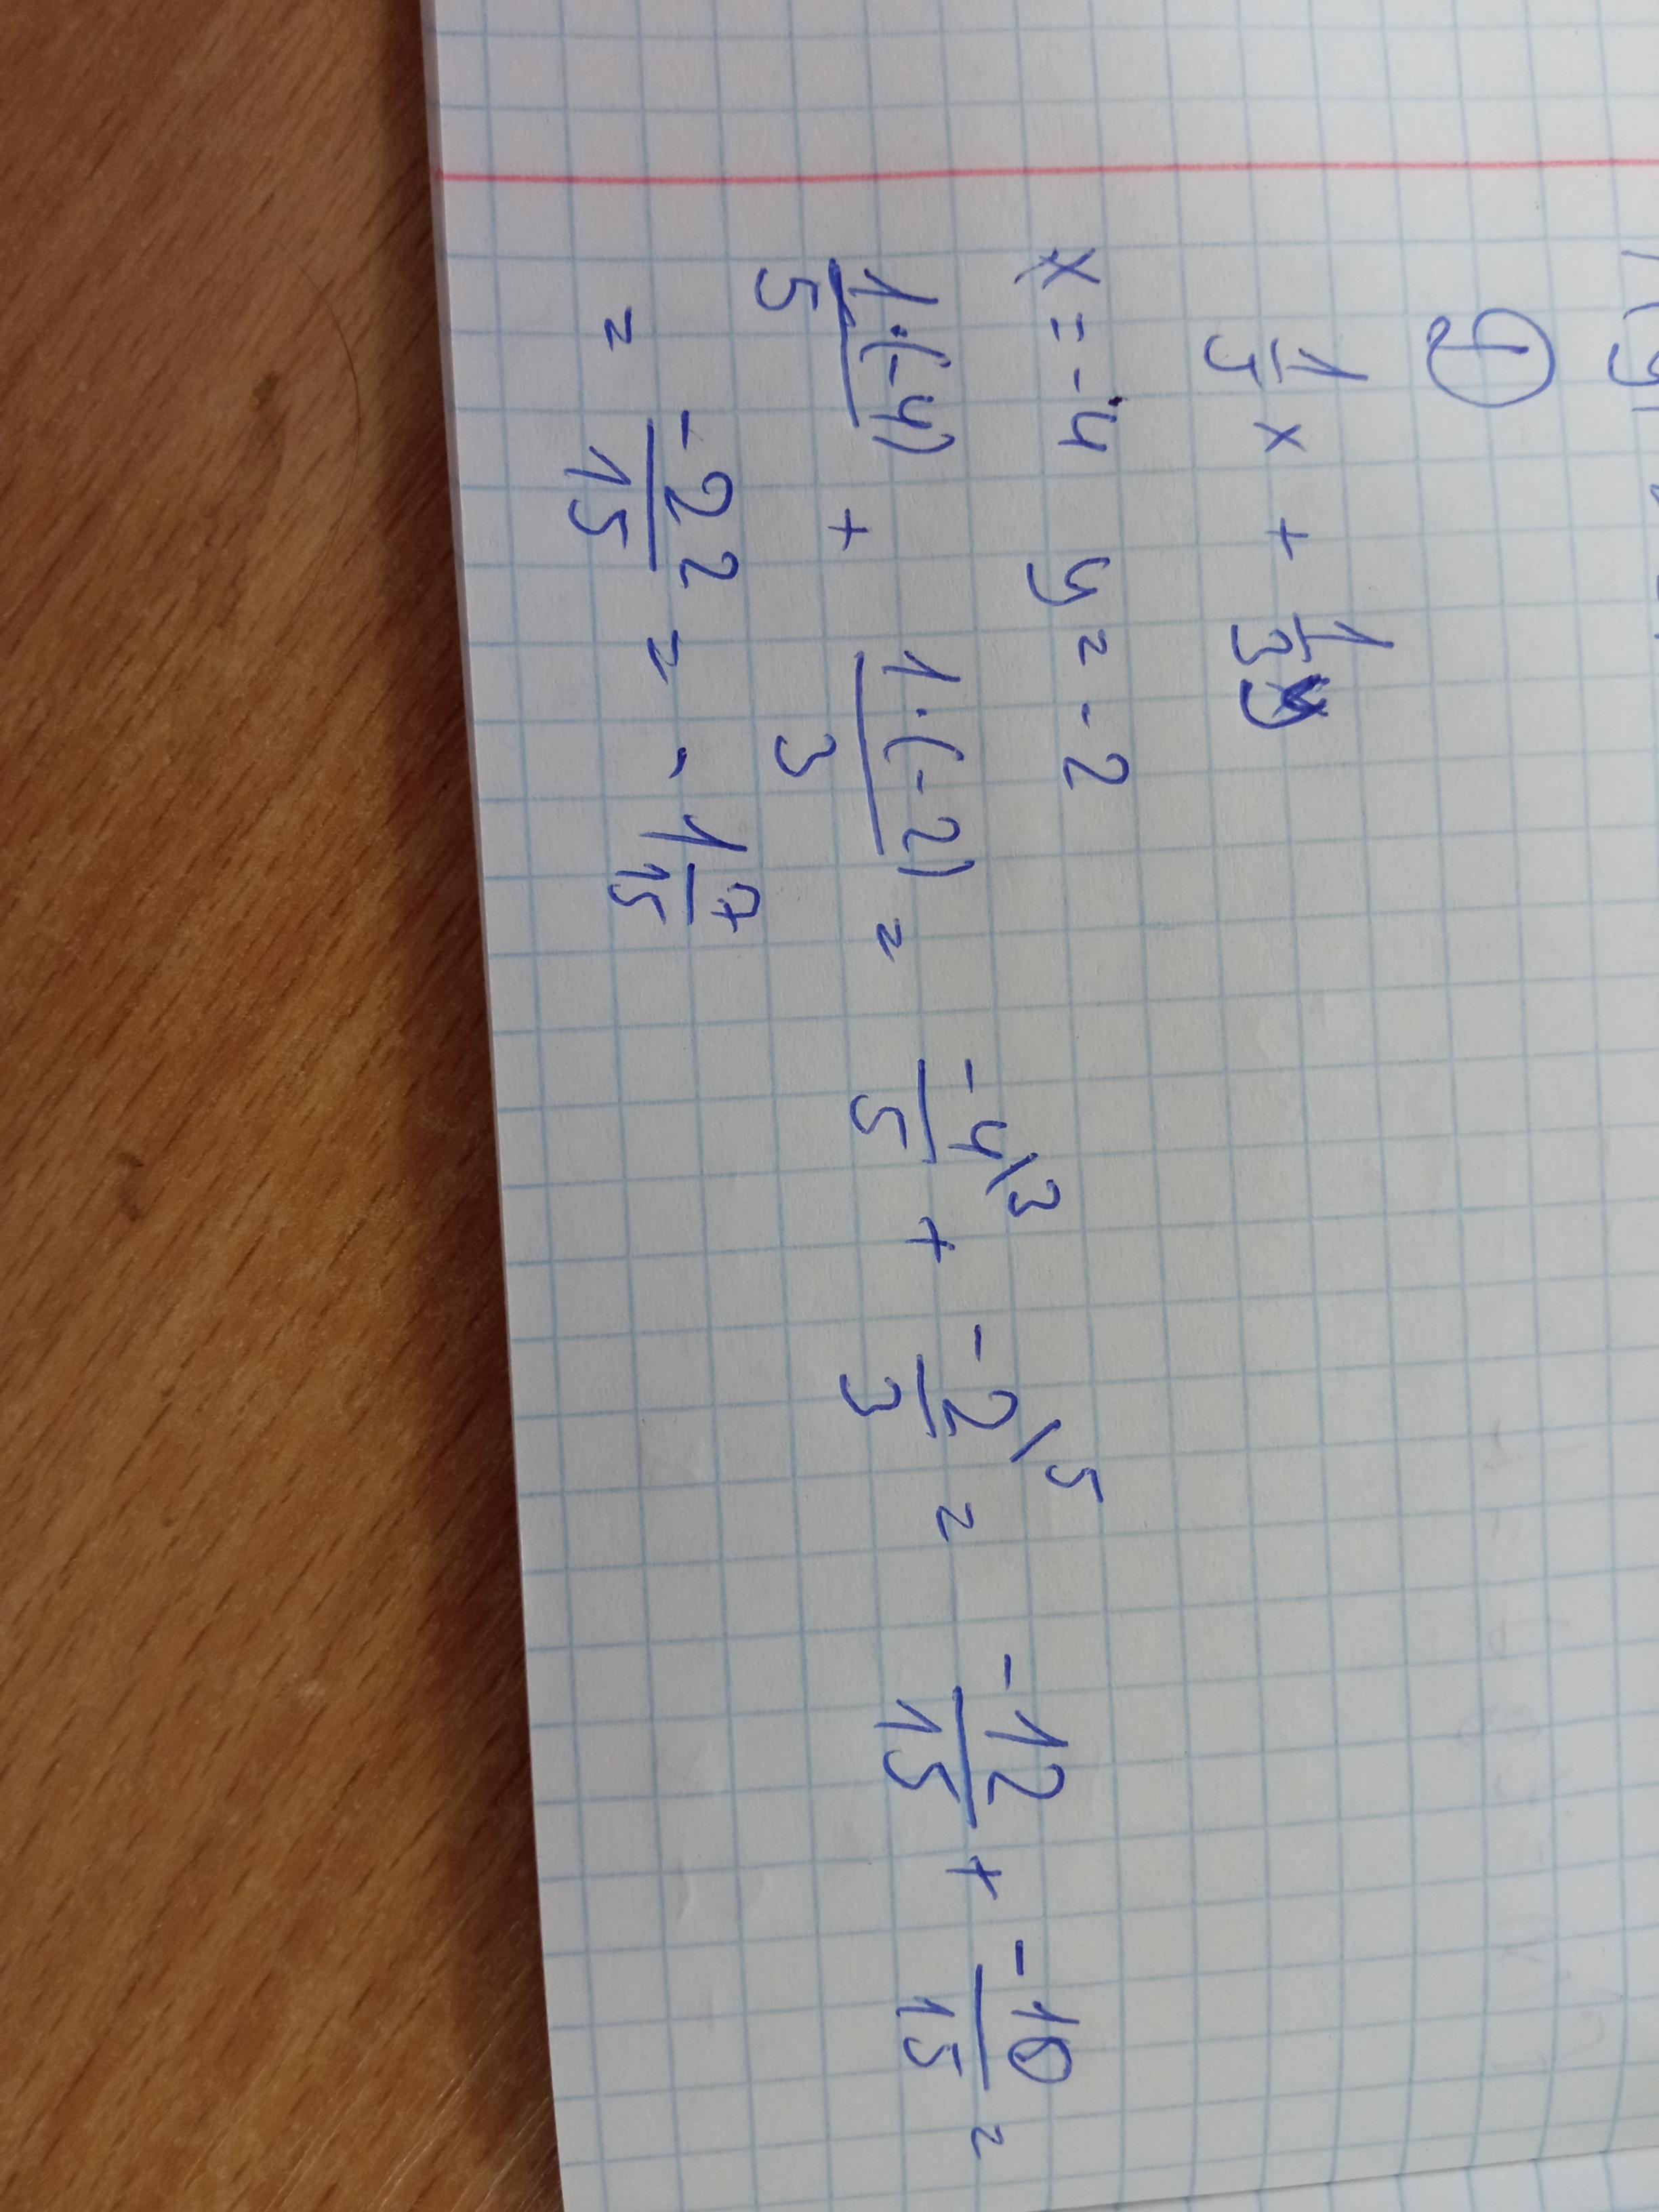 ①
1/5 x + 1/3 y
x = -4 y = -2
1·(-4)/5 + 1·(-2)/3 = -4\3/5 + -2\5/3 = -12/15 + -10/15 =
= -22/15 = -1 7/15